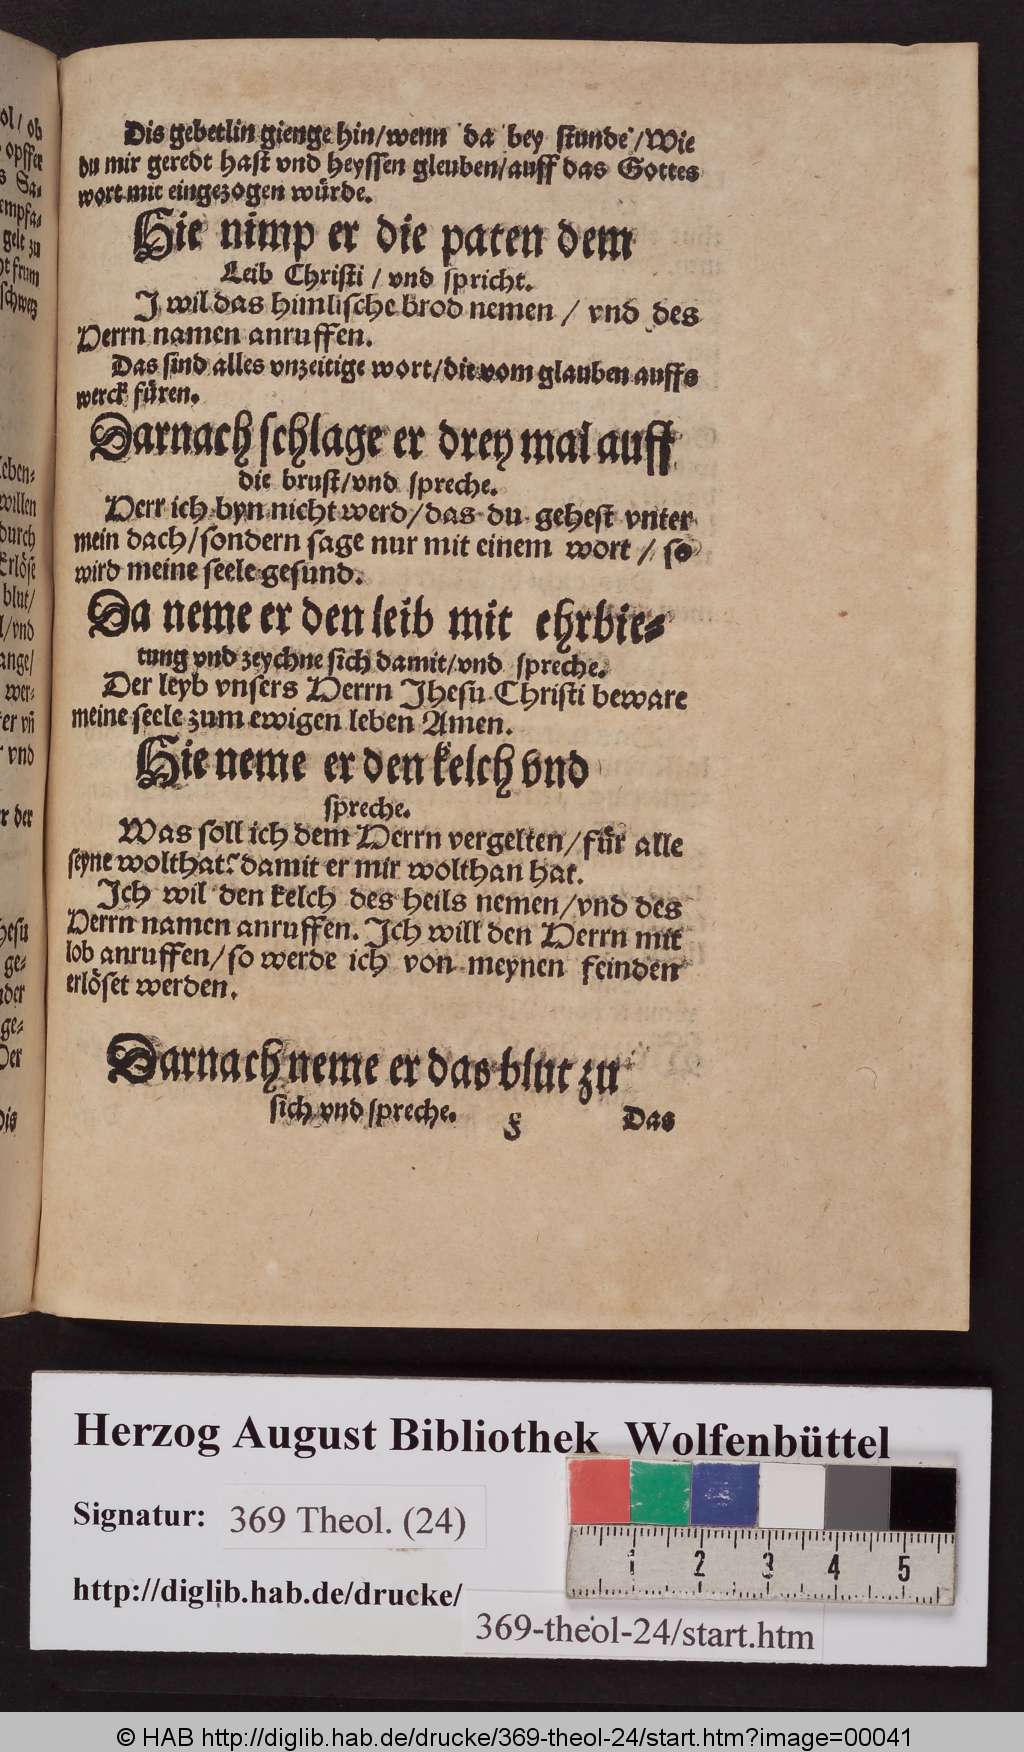 Dis gebetlin gienge hin/wenn da bey stunde/Wie
du mir geredt hast vnd heyssen gleuben/auff das Gottes
wort mit eingezogen würde.
Hie nimp er die paten dem
Leib Christi / vnd spricht.
J wil das himlische brod nemen / vnd des
Herrn namen anruffen.
Das sind alles vnzeitige wort/die vom glauben auffs
werck füren.
Darnach schlage er drey mal auff
die brust/vnd spreche.
Herr ich byn nicht werd/das du gehest vnter
mein dach/sondern sage nur mit einem wort / so
wird meine seele gesund.
Da neme er den leib mit ehrbie-
tung vnd zeychne sich damit/vnd spreche.
Der leyb vnsers Herrn Jhesu Christi beware
meine seele zum ewigen leben Amen.
Hie neme er den kelch vnd
spreche.
Was soll ich dem Herrn vergelten/für alle
seyne wolthat? damit er mir wolthan hat.
Jch wil den kelch des heils nemen/vnd des
Herrn namen anruffen. Jch will den Herrn mit
lob anruffen/so werde ich von meynen feinden
erlöset werden.
Darnach neme er das blut zu
sich vnd spreche.
Das
ol/ ob
opffer
Sa-
empfa-
gelt zu
frum
schwetz
leben-
willen
durch
Erlöse
blut/
l/vnd
ange/
wer-
er vñ
vnd
r der
hesu
ge-
nder
ge-
Der
Dis
Herzog August Bibliothek Wolfenbüttel
Signatur: 369 Theol. (24)
http://diglib.hab.de/drucke/
369-theol-24/start.htm
1 2 3 4 5
© HAB http://diglib.hab.de/drucke/369-theol-24/start.htm?image=00041